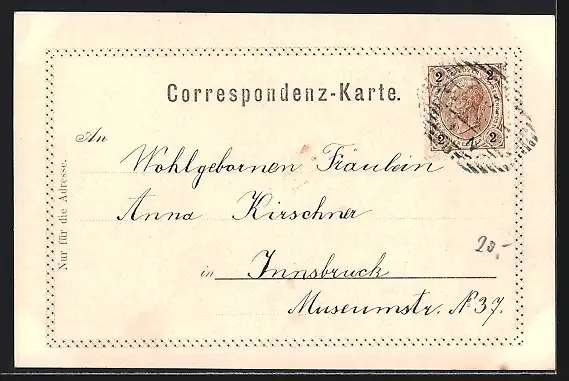 Correspondenz-Karte.
2 2
2 2
An
Wohlgebornen Fräulein
Anna Kirschner
in Innsbruck
Museumstr. N. 37.
20.-
Nur für die Adresse.